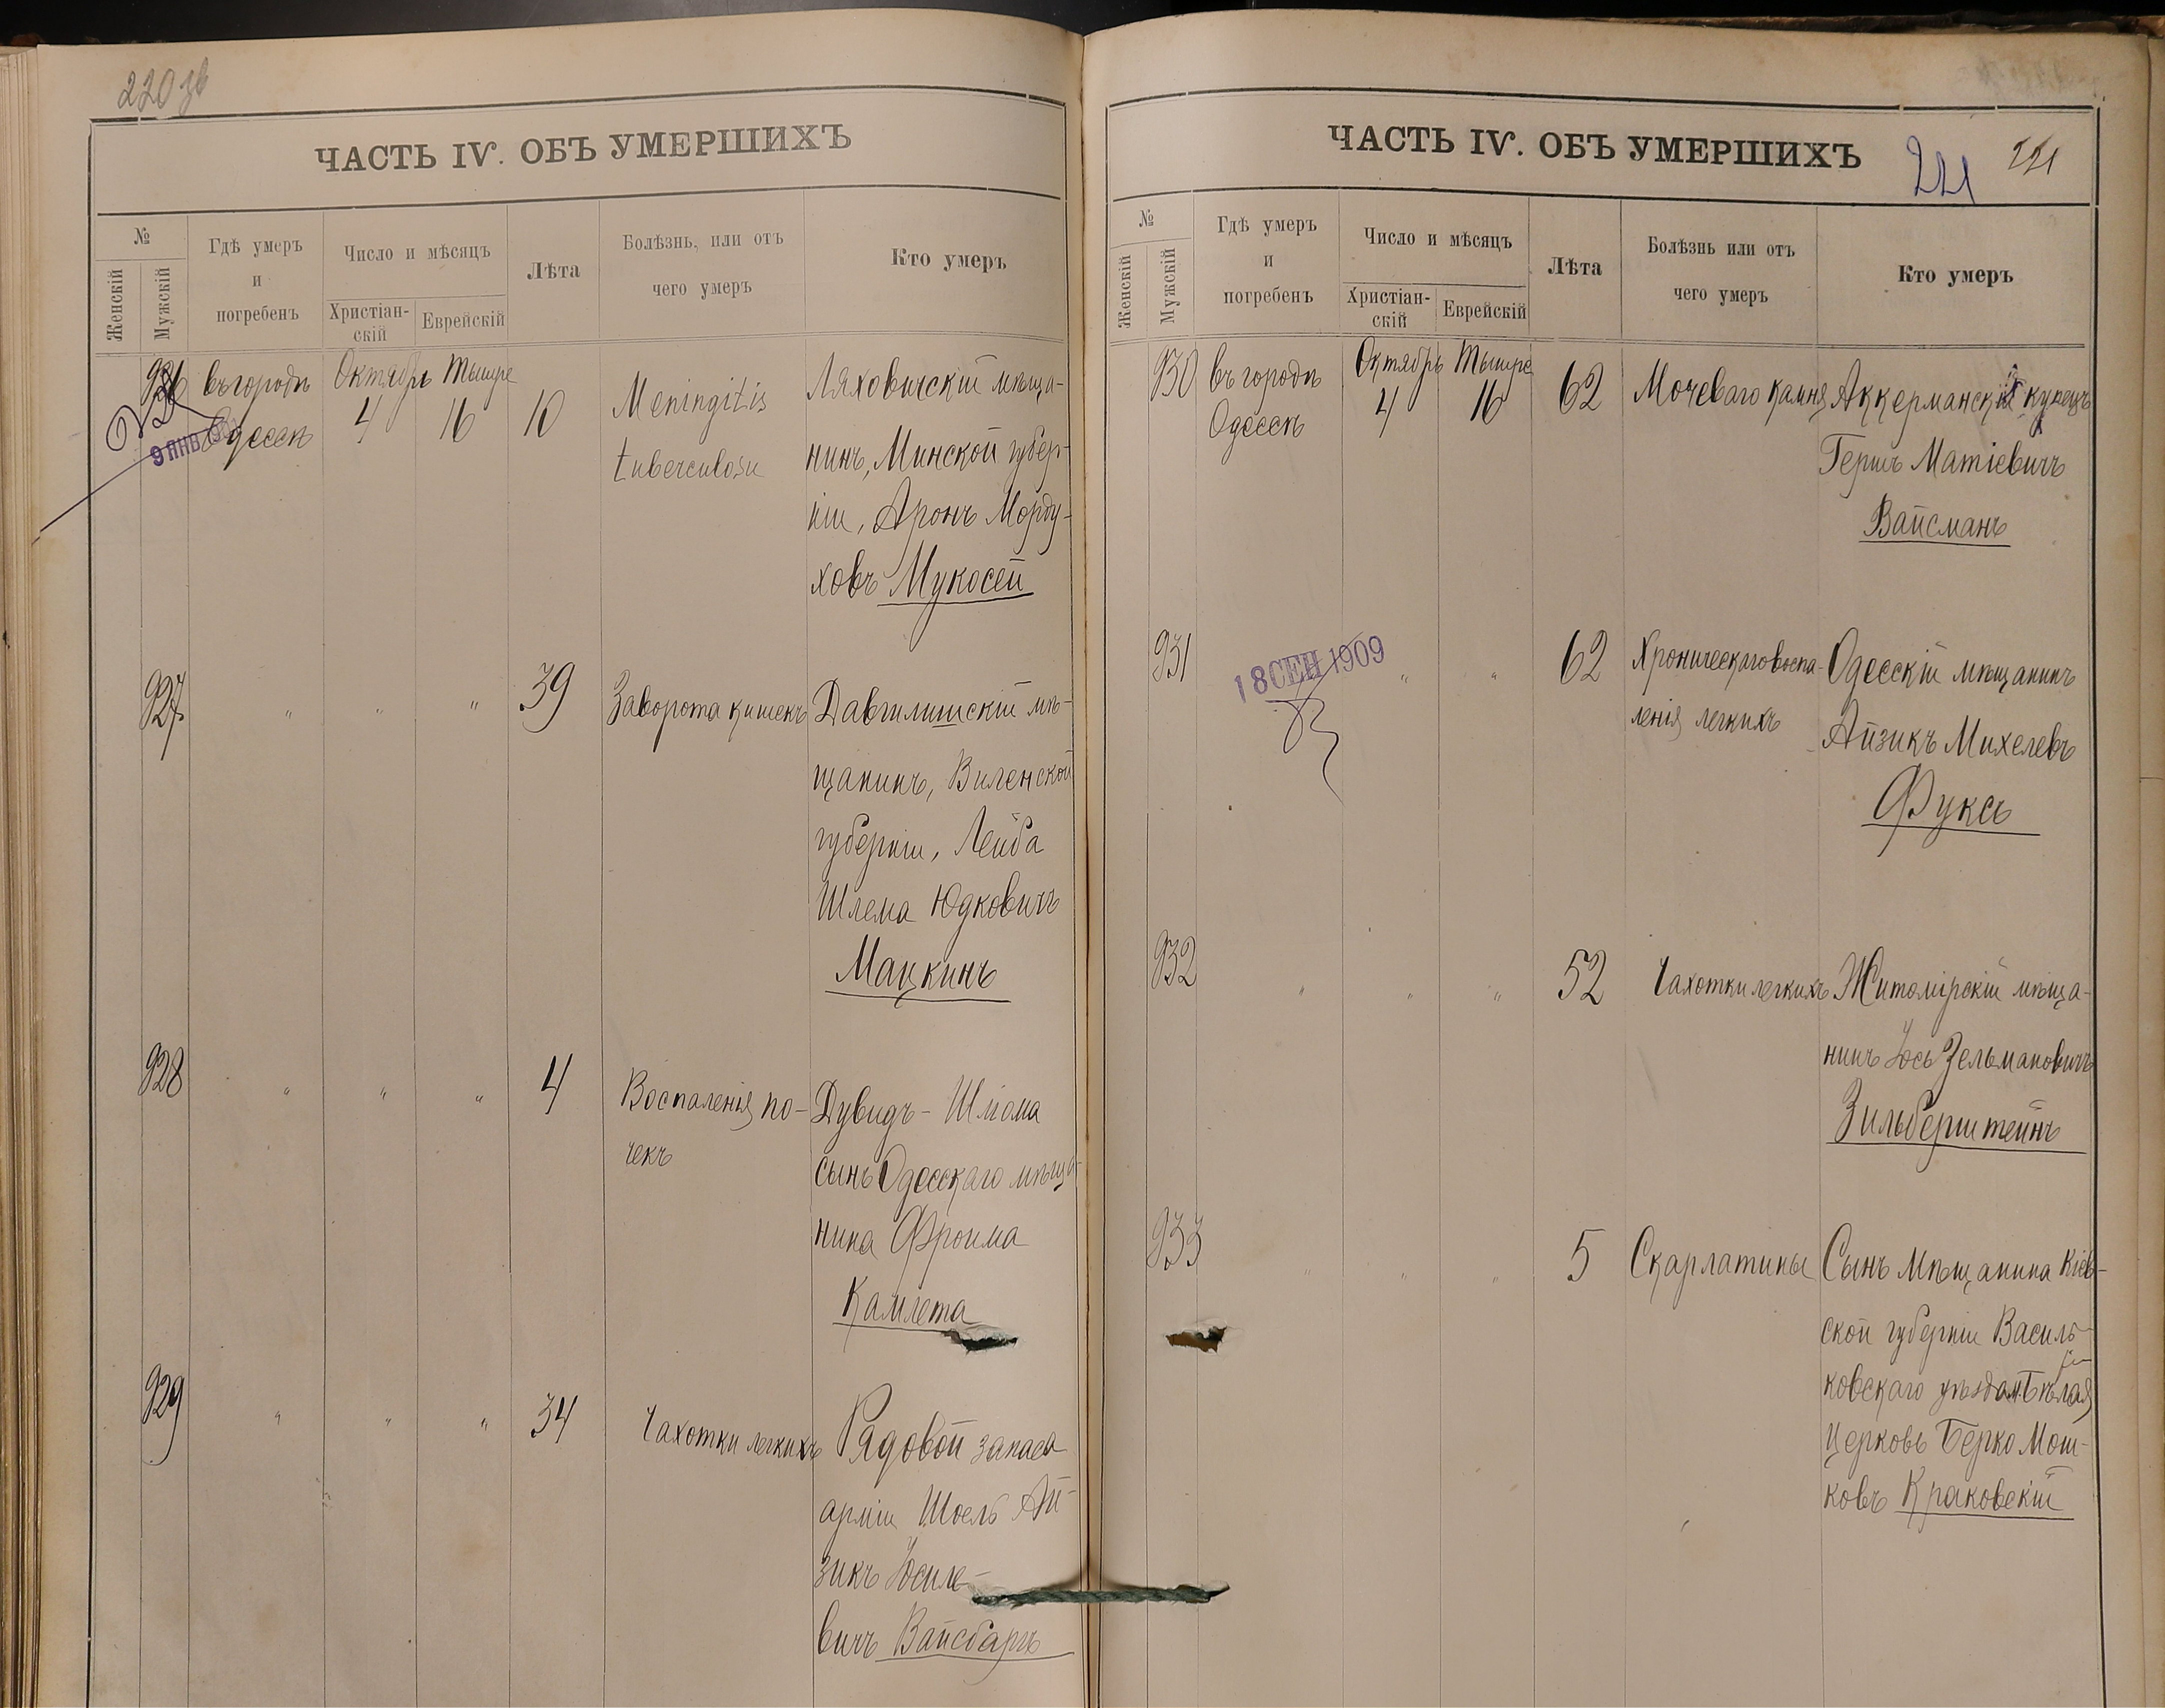 220 зв
ЧАСТЬ IV. ОБЪ УМЕРШИХЪ
№
Женскій
Мужскій
Гдѣ умеръ
и
погребенъ
Число и мѣсяцъ
Христіан-
скій
Еврейскій
Лѣта
Болѣзнь, или отъ
чего умеръ
Кто умеръ
926 въ городѣ Октябрь Тышре
Одессѣ 4 16 10
9 ЯНВ
Meningitis
tuberculosa
Ляховичскій мѣща-
нинъ, Минской губер-
ніи, Аронъ Морду-
ховъ Мукосей
927 " " " 39 Заворота кишекъ
Давгилишскій мѣ-
щанинъ, Виленской
губерніи, Лейба
Шлема Юдковичъ
Мацкинъ
928 " " " 4 Воспаленія по-
чекъ
Дувидъ - Шліома
сынъ Одесскаго мѣща-
нина Фроима
Камлета
929 " " " 34 Чахотки легкихъ
Рядовой запаса
арміи Шоель Ай-
зикъ Іосиле-
вичъ Вайсбаргъ
ЧАСТЬ IV. ОБЪ УМЕРШИХЪ
221 221
№
Женскій
Мужскій
Гдѣ умеръ
и
погребенъ
Число и мѣсяцъ
Христіан-
скій
Еврейскій
Лѣта
Болѣзнь или отъ
чего умеръ
Кто умеръ
930 въ городѣ Октябрь Тышре
Одессѣ 4 16 62 Мочеваго камня
Аккерманскій купецъ
Гершъ Матіевичъ
Вайсманъ
931 18 СЕН 1909 " " 62 Хроническаго воспа-
ленія легкихъ
Одесскій мѣщанинъ
Айзикъ Михелевъ
Фуксъ
932 " " " 52 Чахотки легкихъ
Житомірскій мѣща-
нинъ Іось Зельмановичъ
Зильберштейнъ
933 " " " 5 Скарлатины
Сынъ мѣщанина Кіев-
ской губерніи Василь-
ковскаго уѣзда м. Бѣлая
Церковь Берко Мош-
ковъ Краковскій